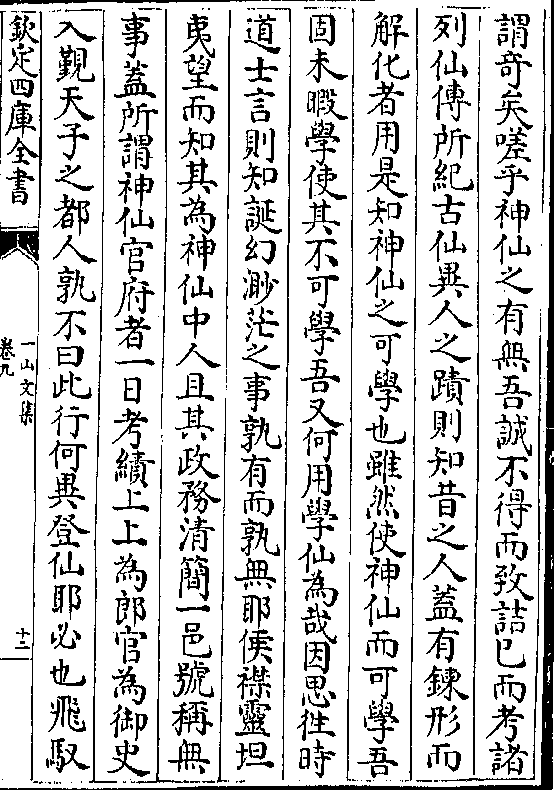 謂奇矣嗟乎神仙之有無吾誠不得而致詰已而考諸
列仙傳所紀古仙異人之蹟則知昔之人蓋有鍊形而
解化者用是知神仙之可學也雖然使神仙而可學吾
固未暇學使其不可學吾又何用學仙為哉因思徃時
道士言則知誕幻渺茫之事孰有而孰無耶侯襟靈坦
夷望而知其為神仙中人且其政務清簡一邑號稱無
事蓋所謂神仙官府者一日考績上上為郎官為御史
入覲天子之都人孰不曰此行何異登仙耶必也飛馭
欽定四庫全書
一山文集
卷九
十二